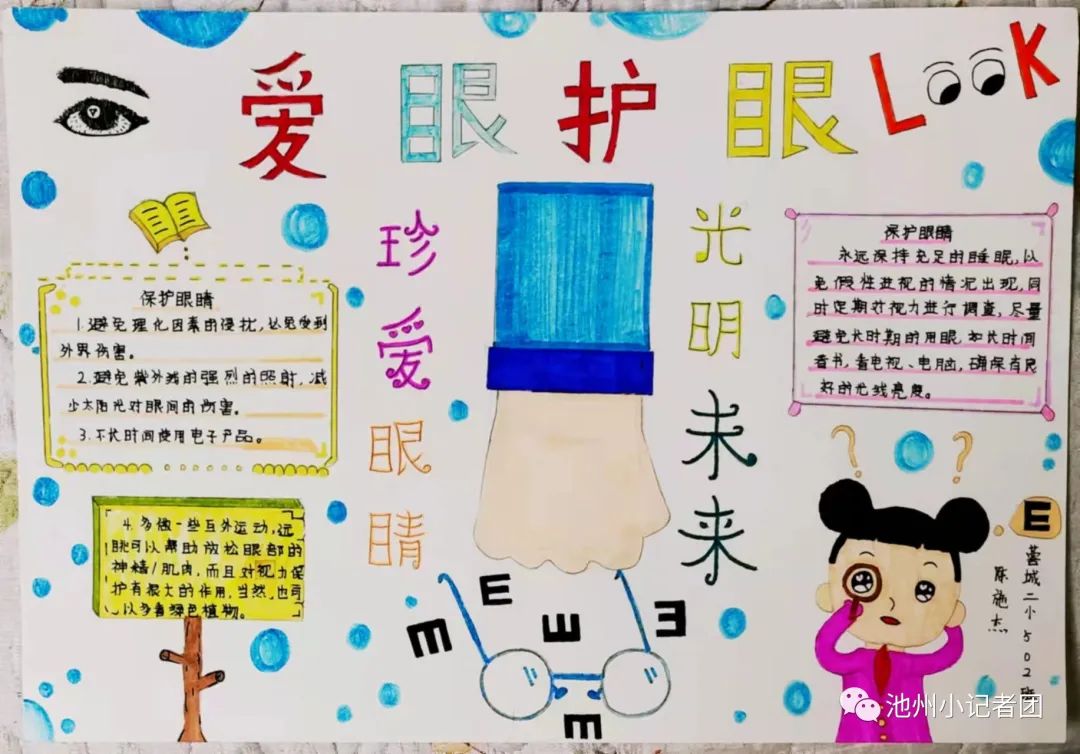 爱眼护眼 LOOK
珍爱眼睛
光明未来
保护眼睛
1.避免理化因素的侵扰,以免受到
外界伤害。
2.避免紫外线的强烈的照射,减
少太阳光对眼间的伤害。
3.不长时间使用电子产品。
4.多做一些互外运动,远
眺可以帮助放松眼部的
神精/肌肉,而且对视力保
护有很大的作用,当然,也可
以多看绿色植物。
保护眼睛
永远深持充足的睡眠,以
免假性进视的情况出现,同
时定期对视力进行调查,尽量
避免长时期的用眼,如长时间
看书,看电视、电脑,确保有良
好的光线亮度。
E
E
E
E
E
E
城二小502班
陈施杰
池州小记者团